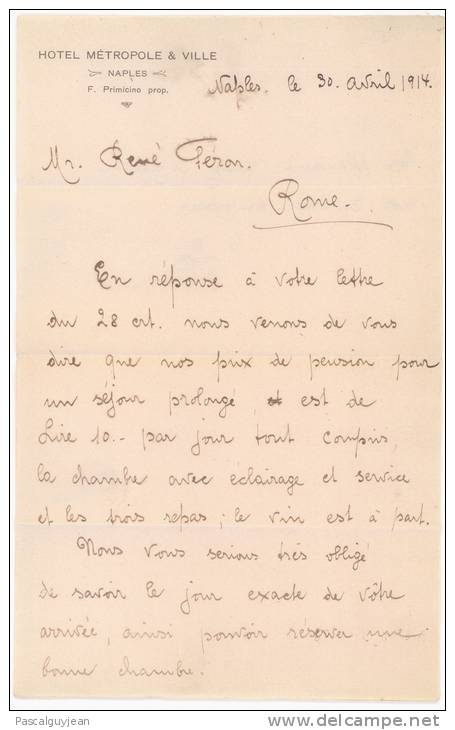 HOTEL MÉTROPOLE & VILLE
NAPLES
F. Primicino prop.
Naples, le 30. avril 1914.
Mr. René Féron.
Rome.
En réponse à votre lettre
du 28 crt. nous venons de vous
dire que nos prix de pension pour
un séjour prolongé, est de
Lire 10.- par jour tout compris,
la chambre avec éclairage et service
et les trois repas; le vin est à part.
Nous vous serions très obligé
de savoir le jour exacte de vôtre
arrivée, ainsi pouvoir réserver une
bonne chambre.
Pascalguyjean
www.delcampe.net